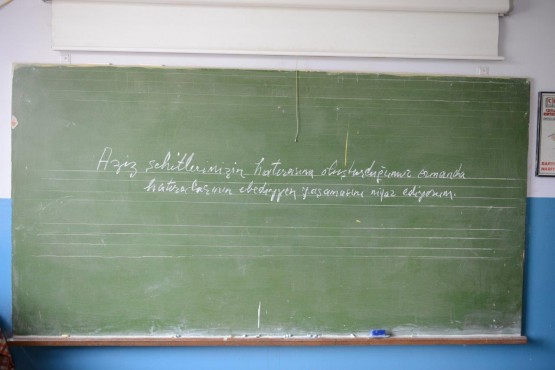 Aziz şehitlerimizin hatırasına oluşturduğumuz zamanda
hatıralarının ebediyyen yaşamasını niyaz ediyorum.